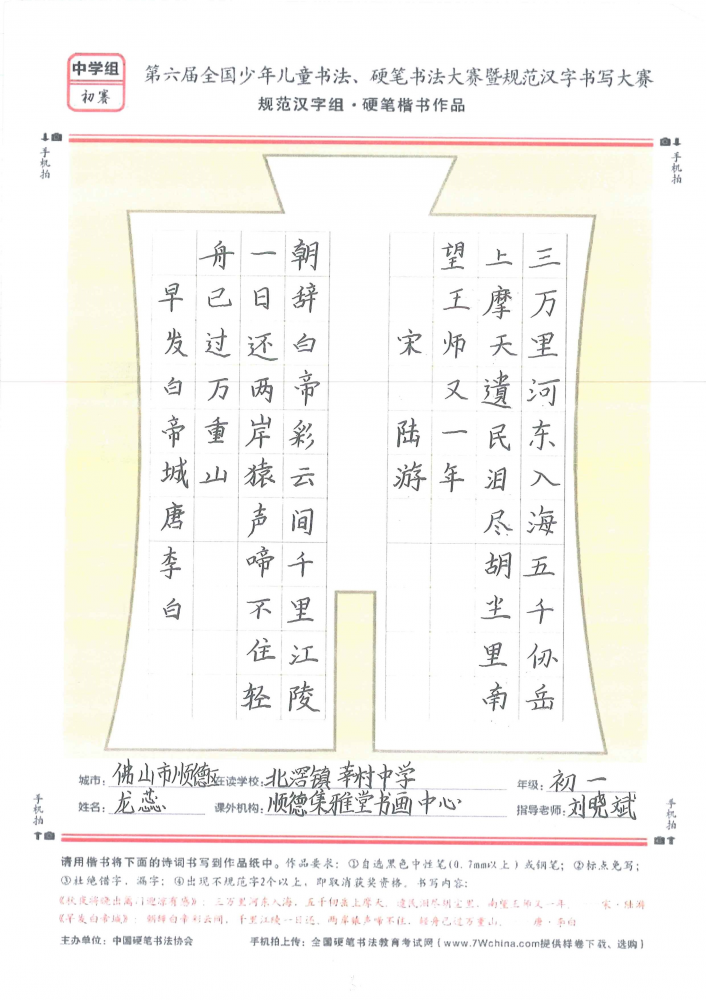 中学组
初赛
第六届全国少年儿童书法、硬笔书法大赛暨规范汉字书写大赛
规范汉字组·硬笔楷书作品
手机拍
手机拍
三万里河东入海五千仞岳
上摩天遗民泪尽胡尘里南
望王师又一年
宋陆游
朝辞白帝彩云间千里江陵
一日还两岸猿声啼不住轻
舟已过万重山
早发白帝城唐李白
城市：佛山市顺德区 在读学校：北滘镇莘村中学 年级：初一
姓名：龙蕊 课外机构：顺德集雅堂书画中心 指导老师：刘晓斌
手机拍
手机拍
请用楷书将下面的诗词书写到作品纸中。作品要求：①自选黑色中性笔(0.7mm以上)或钢笔；②标点免写；
③杜绝错字，漏字；④出现不规范字2个以上，即取消获奖资格。书写内容：
《秋夜将晓出篱门迎凉有感》：三万里河东入海，五千仞岳上摩天。遗民泪尽胡尘里，南望王师又一年。——宋·陆游
《早发白帝城》：朝辞白帝彩云间，千里江陵一日还。两岸猿声啼不住，轻舟已过万重山。——唐·李白
主办单位：中国硬笔书法协会 手机拍上传：全国硬笔书法教育考试网（www.7Wchina.com提供样卷下载、选购）